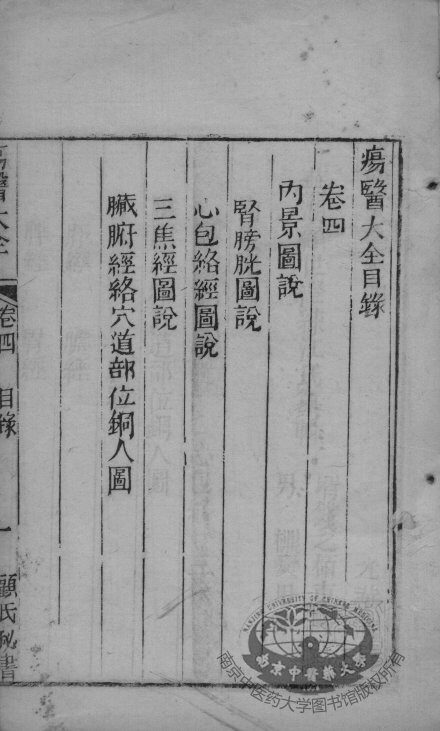 瘍醫大全目錄
卷四
內景圖說
腎膀胱圖說
心包絡經圖說
三焦經圖說
臟腑經絡穴道部位銅人圖
瘍醫大全
卷四 目錄
一
顧氏秘書
NANJING UNIVERSITY OF CHINESE MEDICINE
南京中醫藥大學
南京中医药大学图书馆版权所有